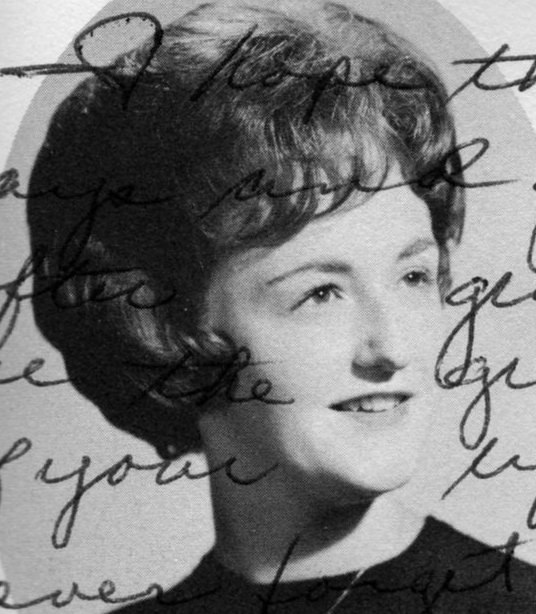 I hope th
ays and
fter gr
e the gr
your
ever forget